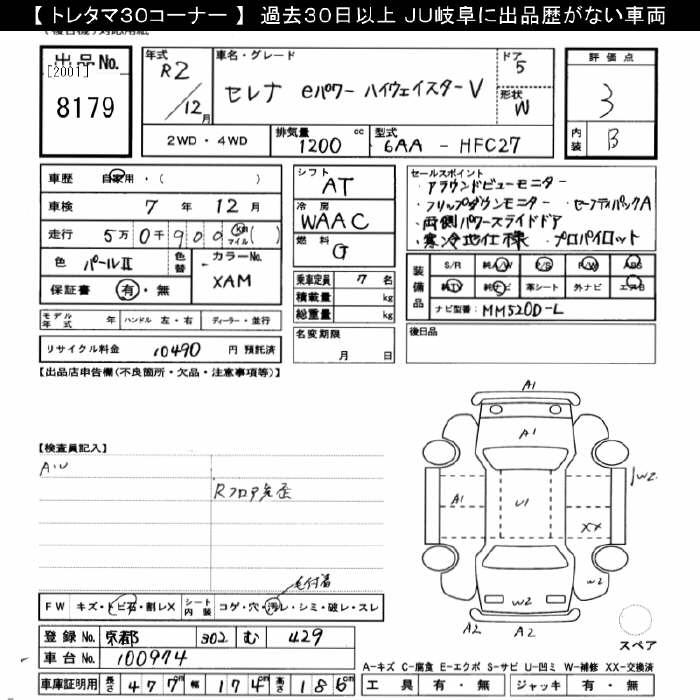 【 トレタマ30コーナー 】 過去30日以上 JU岐阜に出品歴がない車両
出品No.
[2001]
8179
年式
R2
12月
車名・グレード
セレナ eパワー ハイウェイスターV
ドア
5
形状
W
評価点
3
内装
B
2WD・4WD
排気量
1200 cc
型式
6AA - HFC27
車歴 自家用・( )
車検 7年 12月
走行 5万0千900 km マイル ( )
色 パールⅡ
色替
カラーNo.
XAM
保証書 有・無
シフト
AT
冷房
WAAC
燃料
G
乗車定員 7名
積載量 kg
総重量 kg
セールスポイント
・アラウンドビューモニター
・フリップダウンモニター ・セーフティパックA
・両側パワースライドドア
・寒冷地仕様 ・プロパイロット
装備品
S/R 純A/W P/S P/W ABS
純TV 純ナビ 革シート 外ナビ エアB
ナビ型番: MM520D-L
モデル年式 年 ハンドル 左・右 ディーラー・並行
名変期限
月 日
後日品
リサイクル料金 10490 円 預託済
【出品店申告欄(不良箇所・欠品・注意事項等)】
【検査員記入】
A・U
Rフロア突歪
A1
A1
A1
U1
XX
W2
W2
W2
A2 A2
スペア
毛付着
FW キズ・トビ石・割レX
シート内装
コゲ・穴・汚レ・シミ・破レ・スレ
登録No. 京都 302 む 429
車台No. 100974
車庫証明用 長さ 477cm 幅 174cm 高さ 186cm
A-キズ C-腐食 E-エクボ S-サビ U-凹ミ W-補修 XX-交換済
工具 有・無 ジャッキ 有・無